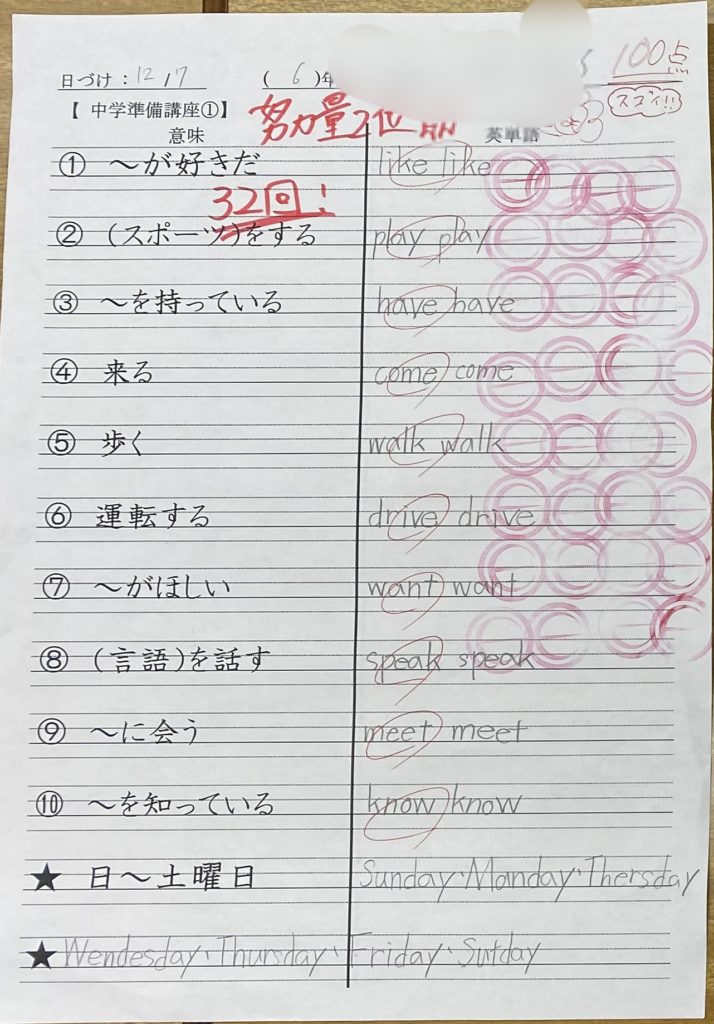 日づけ：12/7 （ 6 ）年 100点
【 中学準備講座①】 努力量2位 スゴイ!!
意味 英単語
① ～が好きだ like like
32回！
② （スポーツ）をする play play
③ ～を持っている have have
④ 来る come come
⑤ 歩く walk walk
⑥ 運転する drive drive
⑦ ～がほしい want want
⑧ （言語）を話す speak speak
⑨ ～に会う meet meet
⑩ ～を知っている know know
★ 日～土曜日 Sunday、Manday、Thersday
★ Wendesday、Thursday、Friday、Sutday